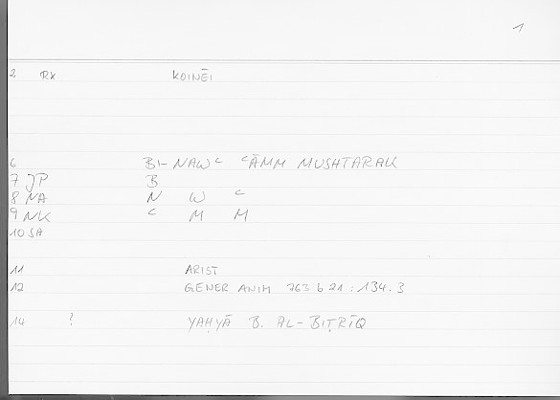 1
2 RX KOINĒI
6 BI-NAWʿ ʿĀMM MUSHTARAK
7 JP B
8 NA N W ʿ
9 NK ʿ M M
10 SA
11 ARIST
12 GENER ANIM 763 b 21 : 134.3
14 ? YAḤYĀ B. AL-BIṬRĪQ